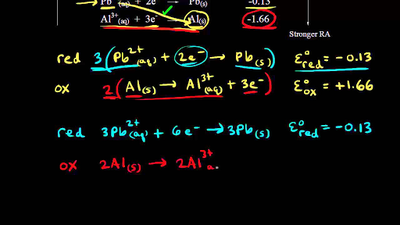 Pb²⁺(aq) + 2e⁻ → Pb(s) -0.13
Al³⁺(aq) + 3e⁻ Al(s) -1.66
Stronger RA
red 3(Pb²⁺(aq) + 2e⁻ → Pb(s)) ℰ°red = -0.13
ox 2(Al(s) → Al³⁺(aq) + 3e⁻) ℰ°ox = +1.66
red 3Pb²⁺(aq) + 6e⁻ → 3Pb(s) ℰ°red = -0.13
ox 2Al(s) → 2Al³⁺a